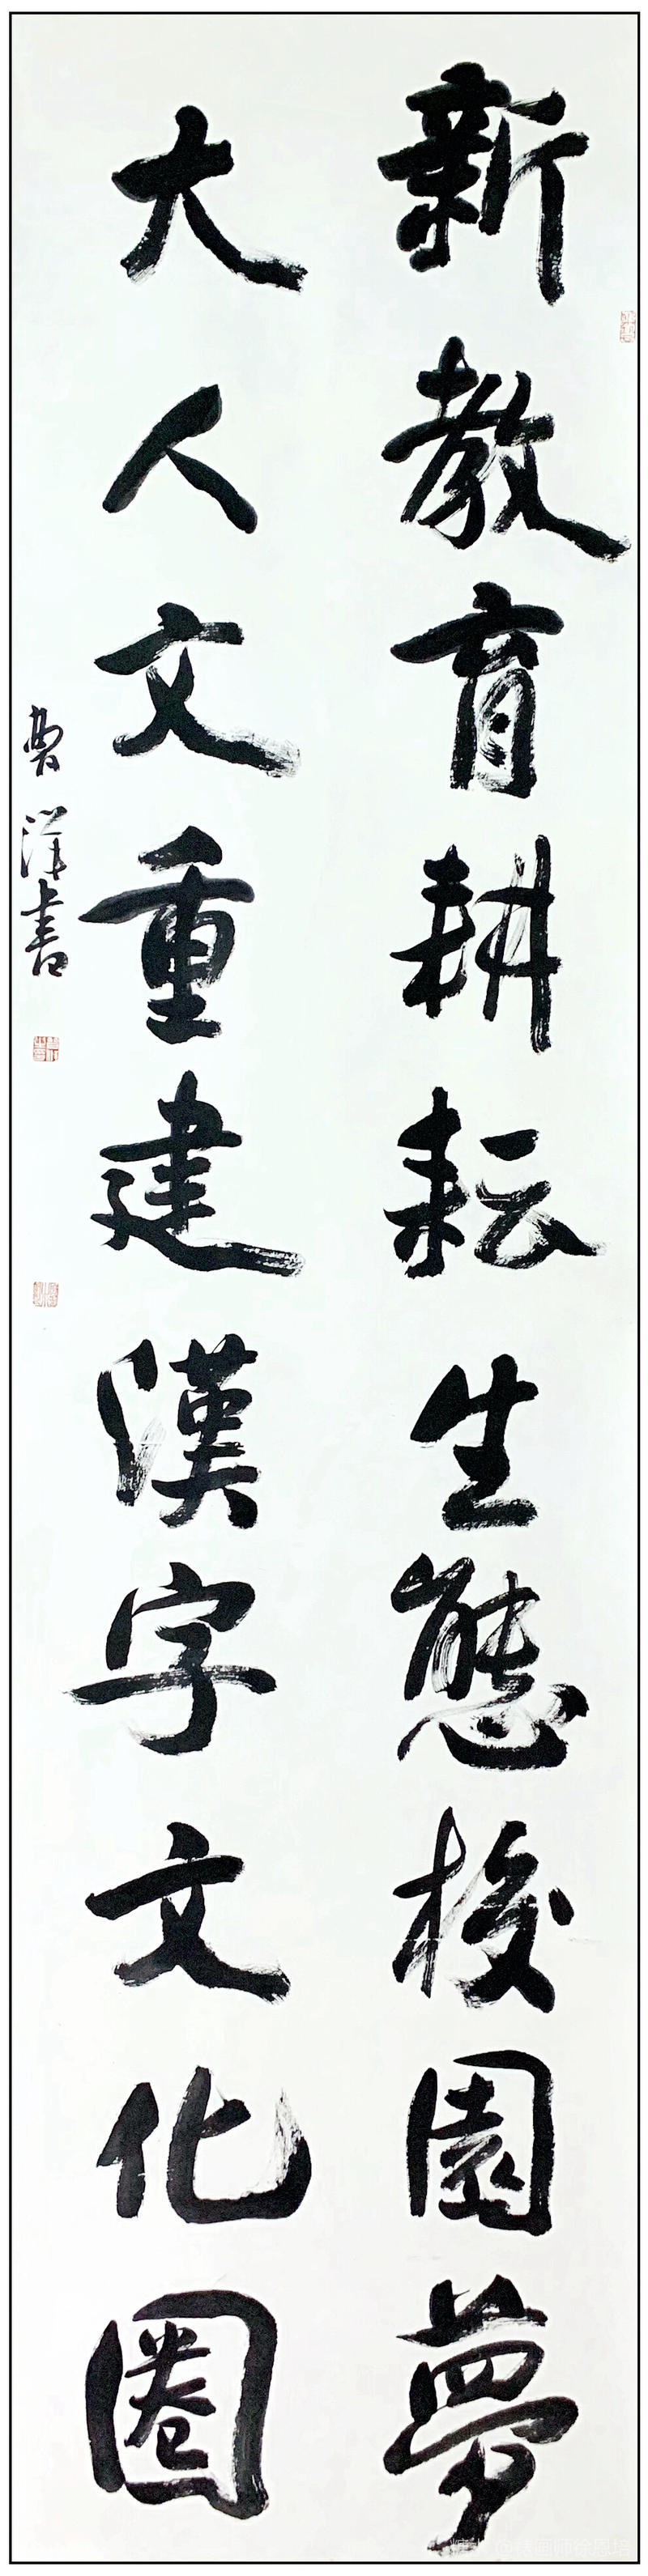 新教育耕耘生態校園夢
大人文重建漢字文化圈
曹洋書